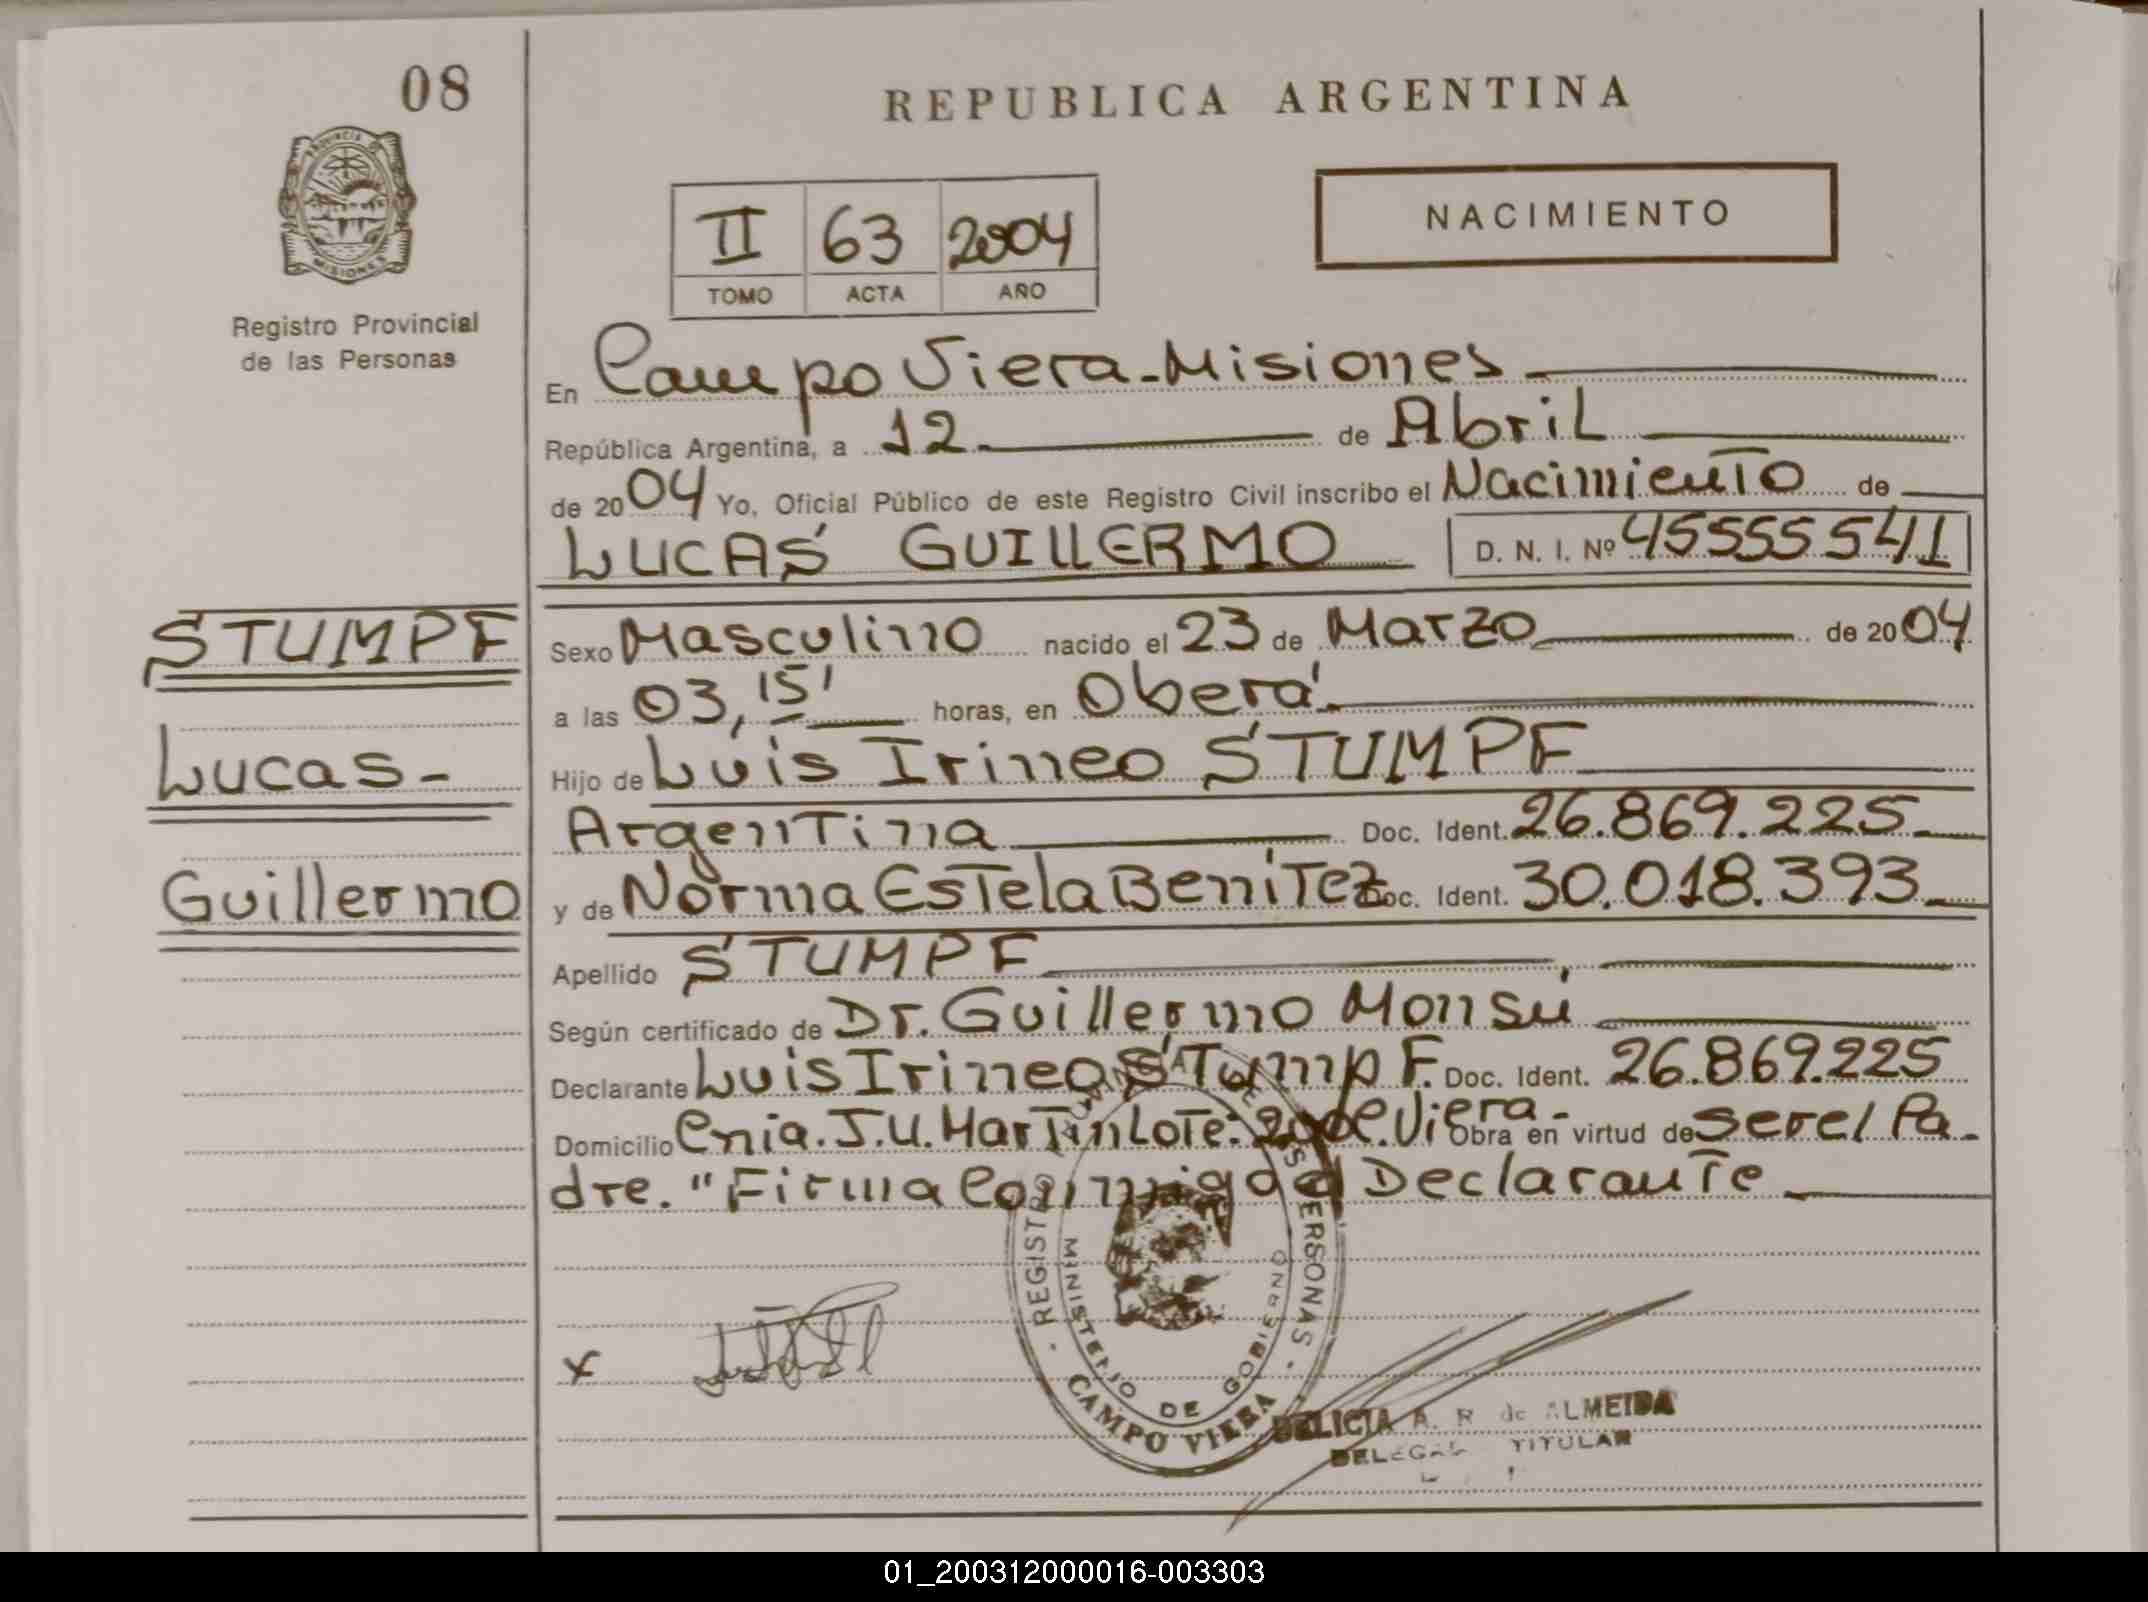 08
REPUBLICA ARGENTINA
PROVINCIA DE
MISIONES
Registro Provincial
de las Personas
NACIMIENTO
II 63 2004
TOMO ACTA AÑO
En Campo Viera-Misiones
República Argentina, a 12 de Abril
de 2004 Yo, Oficial Público de este Registro Civil inscribo el Nacimiento de
LUCAS GUILLERMO D. N. I. Nº 45555541
STUMPF
Lucas-
Guillermo
Sexo Masculino nacido el 23 de Marzo de 2004
a las 03,15' horas, en Oberá
Hijo de Luis Irineo STUMPF
Argentina Doc. Ident. 26.869.225
y de Norma Estela Benitez Doc. Ident. 30.018.393
Apellido STUMPF
Según certificado de Dr. Guillermo Monsú
Declarante Luis Irineo STumpF. Doc. Ident. 26.869.225
Domicilio Cnia. J.U. Martin Lote: C. Viera- Obra en virtud de ser el Pa-
dre. "Firma Conmigo el Declarante
x
REGISTRO PERSONAS
MINISTERIO DE GOBIERNO
CAMPO VIERA
DELICIA A. R. de ALMEIDA
TITULAR
01_200312000016-003303